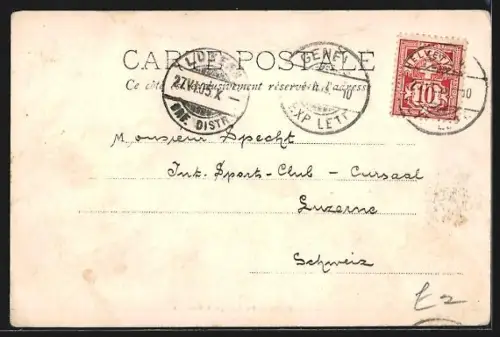 CARTE POSTALE
Ce côté est exclusivement réservé à l'adresse
27.VI.03.X
BRF. DISTR.
GENÈVE
EXP. LETT.
HELVETIA
10
Monsieur Specht
Int. Sport-Club - Cursaal
Luzerne
Schweiz